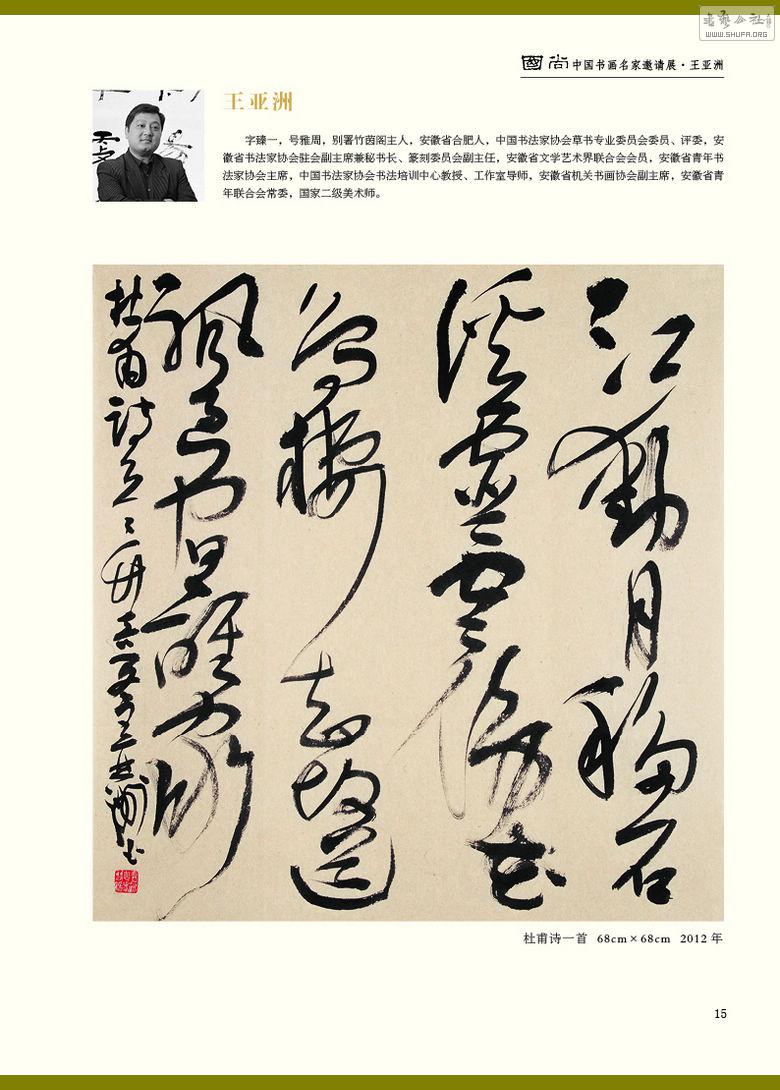 书艺公社
WWW.SHUFA.ORG
國尚 中国书画名家邀请展·王亚洲
王亚洲
字臻一，号雅周，别署竹茵阁主人，安徽省合肥人，中国书法家协会草书专业委员会委员、评委，安
徽省书法家协会驻会副主席兼秘书长、篆刻委员会副主任，安徽省文学艺术界联合会会员，安徽省青年书
法家协会主席，中国书法家协会书法培训中心教授、工作室导师，安徽省机关书画协会副主席，安徽省青
年联合会常委，国家二级美术师。
江動月移石
溪虛雲傍花
鳥棲知故道
帆過宿誰家
杜甫詩
杜甫诗一首 68cm×68cm 2012 年
15